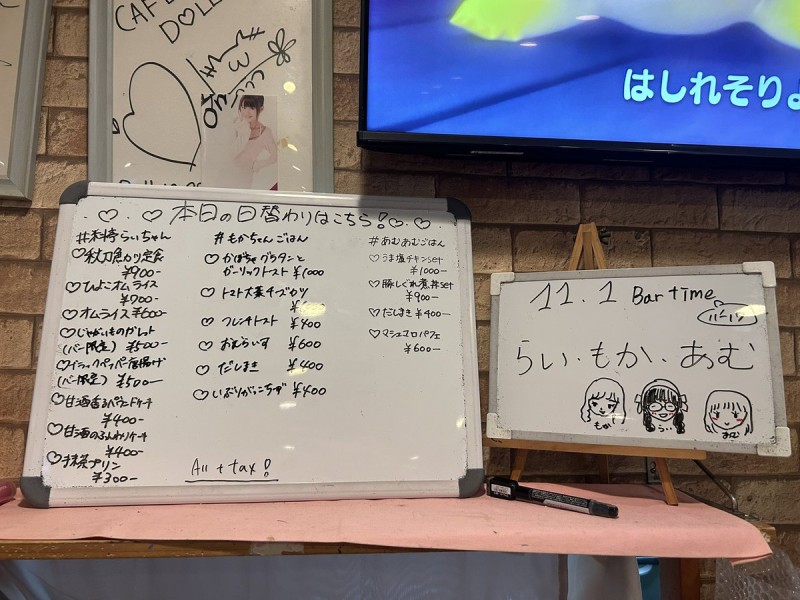 CAFE
DOLL
はしれそりよ
♡ ♡ 本日の日替わりはこちら！♡ ♡
#料特らいちゃん
♡秋刀魚カツ定食
¥900-
♡ひよこオムライス
¥700-
♡オムライス ¥600-
♡じゃがいものガレット
(バー限定) ¥500-
♡ブラックペッパー唐揚げ
(バー限定) ¥500-
♡甘酒香るパウンドケーキ
¥400-
♡甘酒のふんわりケーキ
¥400-
♡抹茶プリン
¥300-
#もかちゃんごはん
♡かぼちゃグラタンと
ガーリックトースト ¥1000
♡トマト大葉チーズカツ
♡フレンチトースト ¥400
♡おむらいす ¥600
♡だしまき ¥400
♡いぶりがっこちーず ¥400
#あむあむごはん
♡うま塩チキンset
¥1000-
♡豚しぐれ煮丼set
¥900-
♡だしまき ¥400-
♡マシュマロパフェ
¥600-
All + tax!
11.1 Bar time
らい・もか・あむ
もか
らい
あむ